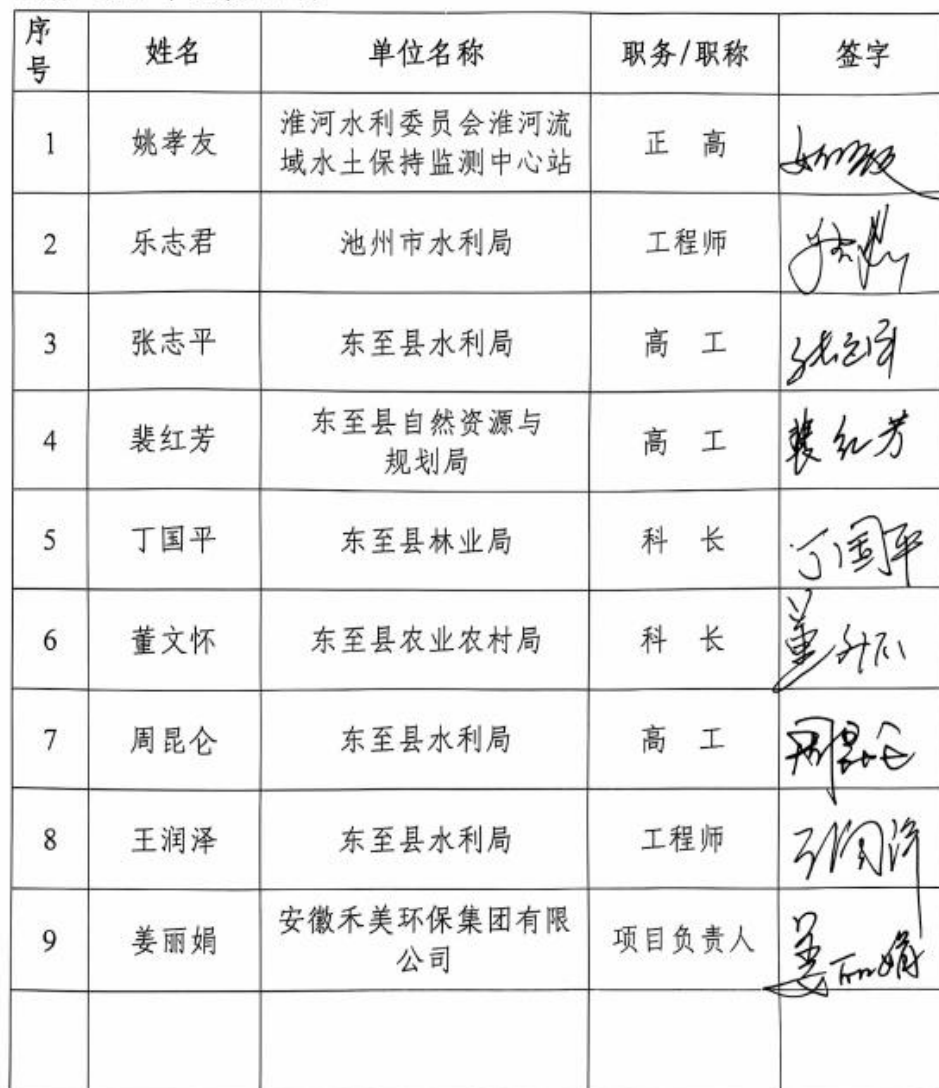 序号 姓名 单位名称 职务/职称 签字
1 姚孝友 淮河水利委员会淮河流
域水土保持监测中心站 正 高
2 乐志君 池州市水利局 工程师
3 张志平 东至县水利局 高 工
4 裴红芳 东至县自然资源与
规划局 高 工 裴红芳
5 丁国平 东至县林业局 科 长 丁国平
6 董文怀 东至县农业农村局 科 长
7 周昆仑 东至县水利局 高 工 周昆仑
8 王润泽 东至县水利局 工程师 王润泽
9 姜丽娟 安徽禾美环保集团有限
公司 项目负责人 姜丽娟